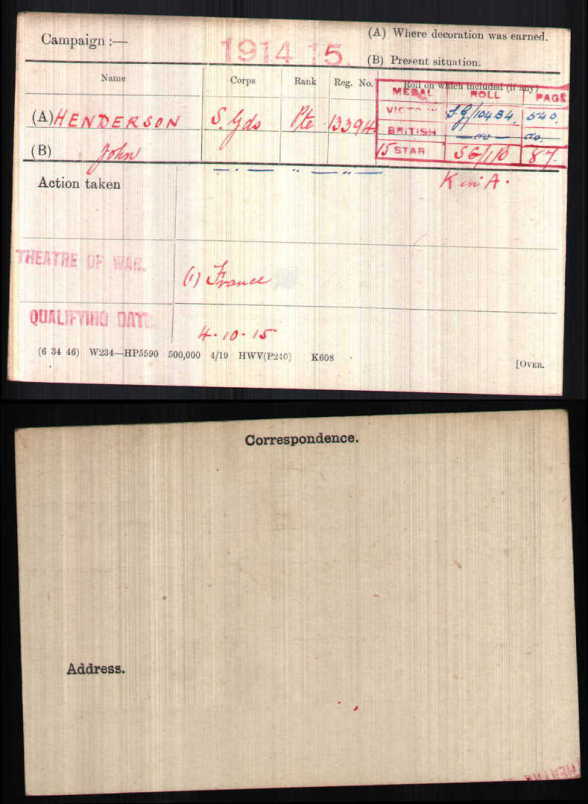 Campaign :—
1914 15.
(A) Where decoration was earned.
(B) Present situation.
Name Corps Rank Reg. No. Roll on which included (if any)
MEDAL ROLL PAGE
(A) HENDERSON S. Gds Pte 13394
VICTORY SG/104B4. 540.
BRITISH —do— do.
(B) John
15 STAR SG/1/B 87.
— " — " —
Action taken
K in A.
THEATRE OF WAR.
(1) France
QUALIFYING DATE.
4-10-15
(6 34 46) W234—HP5590 500,000 4/19 HWV(P240) K608
[OVER.
Correspondence.
Address.